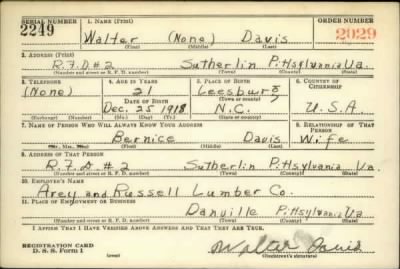 SERIAL NUMBER 1. NAME (Print) ORDER NUMBER
2249 Walter (None) Davis 2029
(First) (Middle) (Last)
2. ADDRESS (Print)
R.F.D #2 Sutherlin Pittsylvania Va.
(Number and street or R. F. D. number) (Town) (County) (State)
3. TELEPHONE 4. AGE IN YEARS 5. PLACE OF BIRTH 6. COUNTRY OF CITIZENSHIP
(None) 21 Leesburg
DATE OF BIRTH (Town or county)
Dec. 25 1918 N.C. U.S.A.
(Exchange) (No.) (Mo.) (Day) (Yr.) (State or country)
7. NAME OF PERSON WHO WILL ALWAYS KNOW YOUR ADDRESS 8. RELATIONSHIP OF THAT PERSON
Bernice Davis Wife
(Mr., Mrs., Miss) (First) (Middle) (Last)
9. ADDRESS OF THAT PERSON
R.F.D #2 Sutherlin Pittsylvania Va
(Number and street or R. F. D. number) (Town) (County) (State)
10. EMPLOYER'S NAME
and Russell Lumber Co.
11. PLACE OF EMPLOYMENT OR BUSINESS
Danville Pittsylvania Va
(Number and street or R. F. D. number) (Town) (County) (State)
I AFFIRM THAT I HAVE VERIFIED ABOVE ANSWERS AND THAT THEY ARE TRUE.
REGISTRATION CARD
D. S. S. Form 1 (over) Walter Davis
(Registrant's signature)